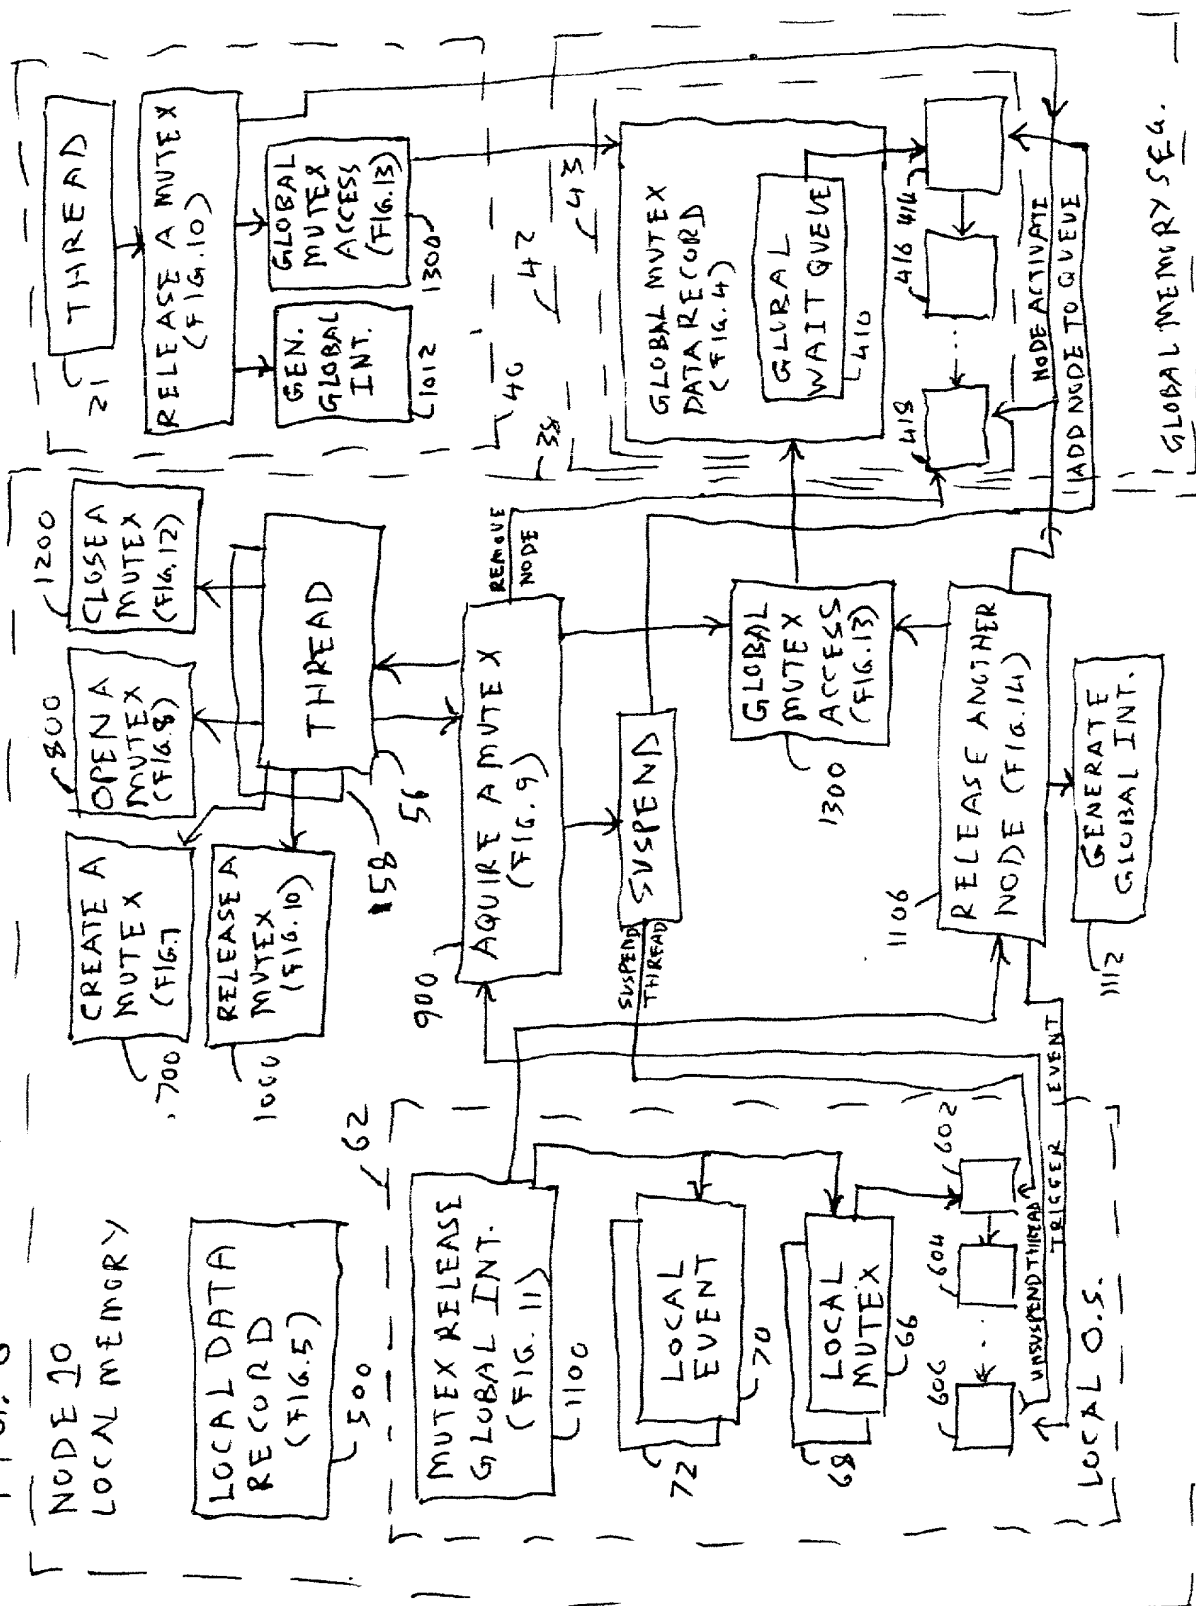 NODE 10
LOCAL MEMORY
LOCAL DATA
RECORD
(FIG.5)
500
62
MUTEX RELEASE
GLOBAL INT.
(FIG. 11)
1100
LOCAL
EVENT
70
72
LOCAL
MUTEX
66
68
602
604
606
UNSUSPEND THREAD
TRIGGER EVENT
LOCAL O.S.
CREATE A
MUTEX
(FIG.7
700
OPEN A
MUTEX
(FIG.8)
800
CLOSE A
MUTEX
(FIG.12)
1200
RELEASE A
MUTEX
(FIG.10)
1000
THREAD
56
58
AQUIRE A MUTEX
(FIG.9)
900
REMOVE
NODE
SUSPEND
SUSPEND
THREAD
GLOBAL
MUTEX
ACCESS
(FIG.13)
1300
RELEASE ANOTHER
NODE (FIG.14)
1106
GENERATE
GLOBAL INT.
1112
THREAD
21
RELEASE A MUTEX
(FIG.10)
GEN.
GLOBAL
INT.
1012
GLOBAL
MUTEX
ACCESS
(FIG.13)
1300
40
42
38
43
GLOBAL MUTEX
DATA RECORD
(FIG.4)
GLOBAL
WAIT QUEUE
410
418
416
414
NODE ACTIVATE
ADD NODE TO QUEUE
GLOBAL MEMORY SEG.